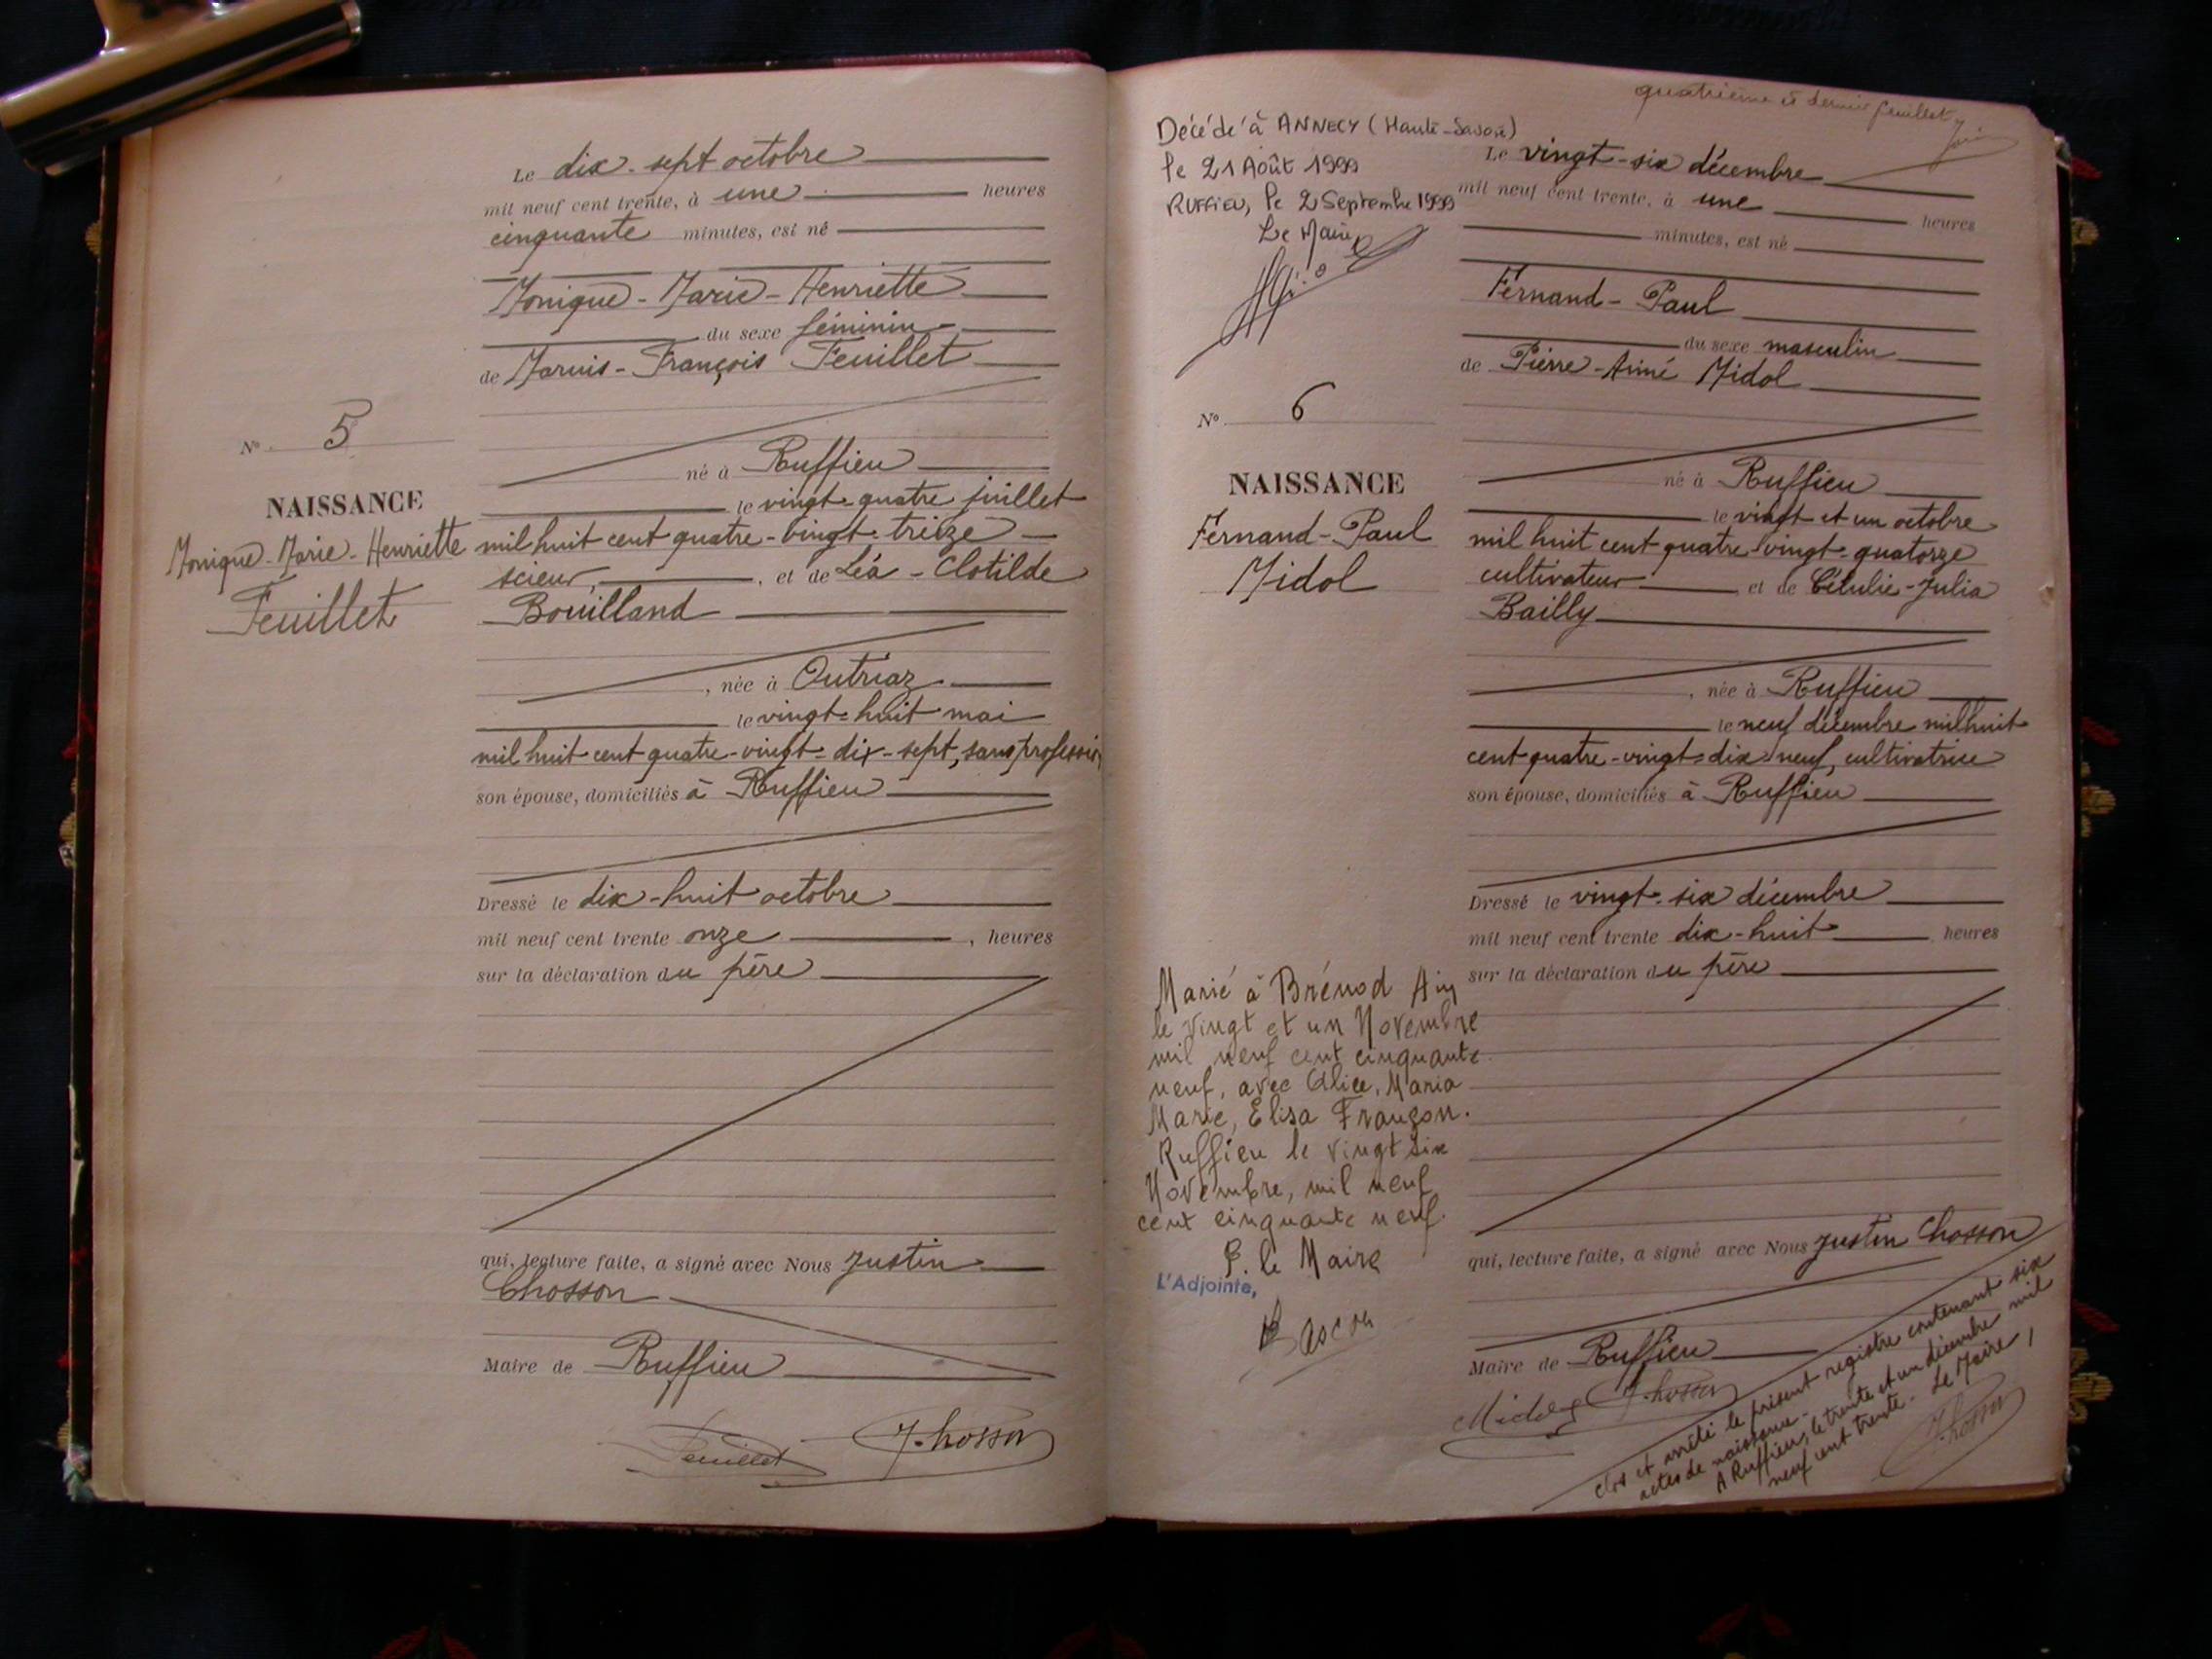 Le dix-sept octobre
mil neuf cent trente, à une heures
cinquante minutes, est né
Monique-Marie-Henriette
du sexe féminin
de Marius-François Feuillet
né à Ruffieu
le vingt-quatre juillet
mil huit cent quatre-vingt-treize
scieur, et de Léa-Clotilde
Bouilland
, née à Outriaz
le vingt-huit mai
mil huit cent quatre-vingt-dix-sept, sans profession
son épouse, domiciliés à Ruffieu
Dressé le dix-huit octobre
mil neuf cent trente onze, heures
sur la déclaration du père
qui, lecture faite, a signé avec Nous Justin
Chosson
Maire de Ruffieu
Feuillet J. Chosson
N° 5
NAISSANCE
Monique-Marie-Henriette
Feuillet
quatrième et dernier feuillet
Décédé à ANNECY (Haute-Savoie)
le 21 Août 1999
RUFFIEU, le 2 Septembre 1999
Le Maire
N° 6
NAISSANCE
Fernand-Paul
Midol
Marié à Brénod Ain
le vingt et un Novembre
mil neuf cent cinquante
neuf, avec Alice, Maria
Marie, Elisa Françon.
Ruffieu le vingt six
Novembre, mil neuf
cent cinquante neuf.
P. le Maire
L'Adjointe,
Le vingt-six décembre
mil neuf cent trente, à une heures
minutes, est né
Fernand-Paul
du sexe masculin
de Pierre-Aimé Midol
né à Ruffieu
le vingt et un octobre
mil huit cent quatre-vingt-quatorze
cultivateur et de Célulie-Julia
Bailly
, née à Ruffieu
le neuf décembre mil huit
cent quatre-vingt-dix-neuf, cultivatrice
son épouse, domiciliés à Ruffieu
Dressé le vingt-six décembre
mil neuf cent trente dix-huit heures
sur la déclaration du père
qui, lecture faite, a signé avec Nous Justin Chosson
Maire de Ruffieu
Midol J. Chosson
Clos et arrêté le présent registre contenant six
actes de naissance.
A Ruffieu, le trente et un décembre mil
neuf cent trente. Le Maire,
J. Chosson